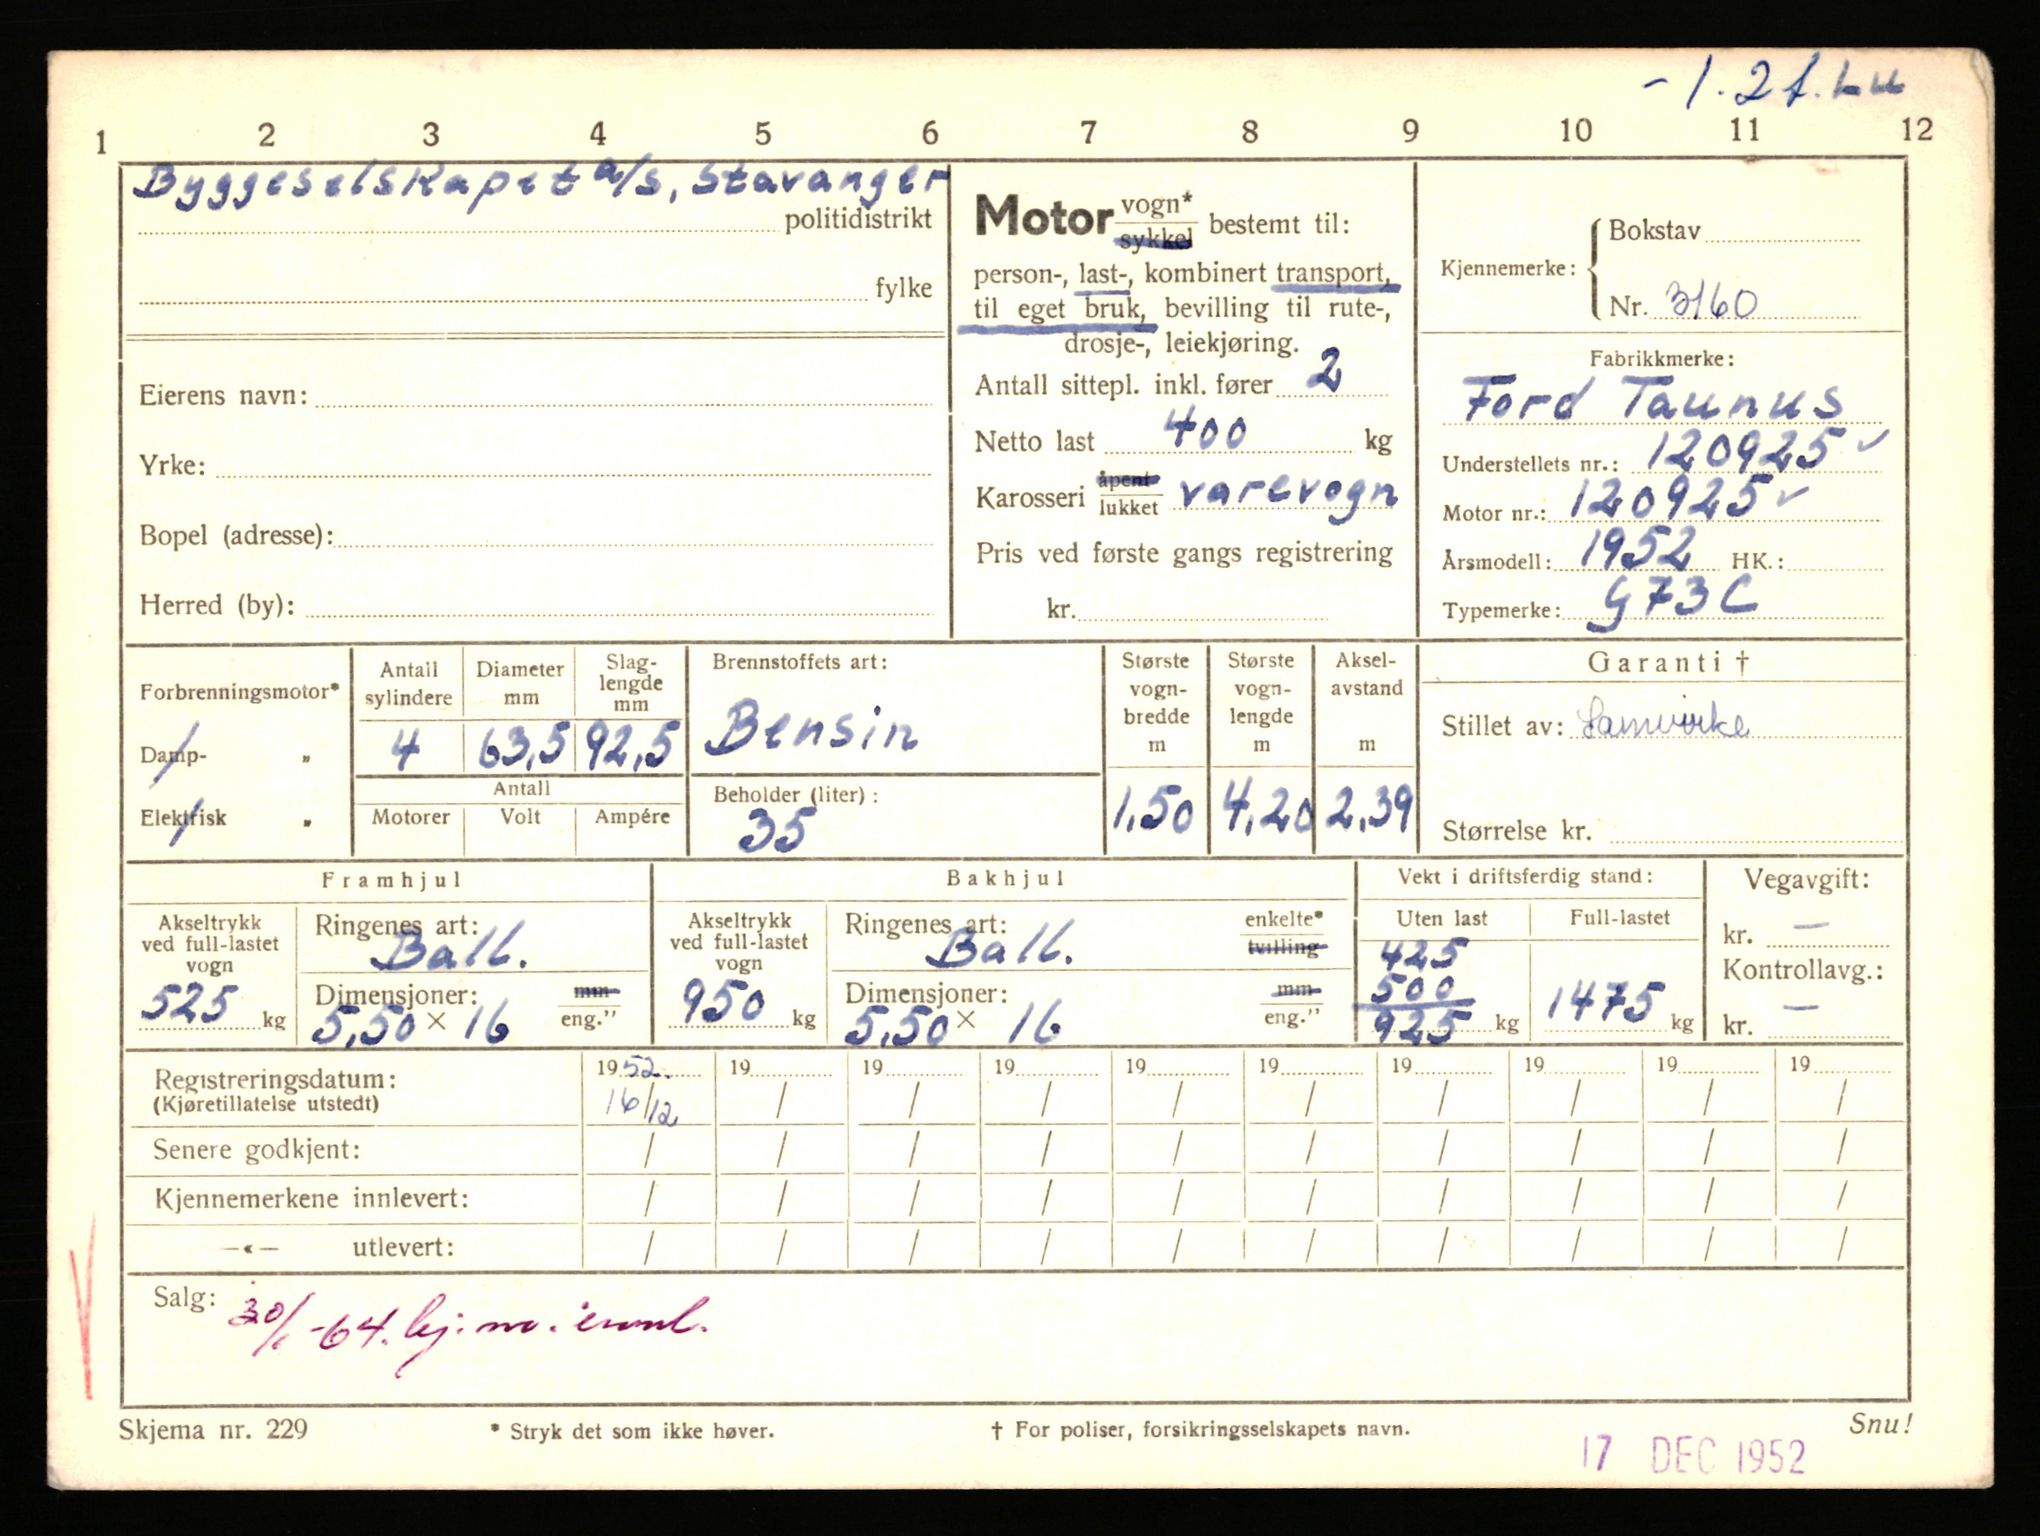 1 2 3 4 5 6 7 8 9 10 11 12
Byggeselskapet a/s, Stavanger
politidistrikt
fylke
Eierens navn:
Yrke:
Bopel (adresse):
Herred (by):
Motor vogn* sykkel bestemt til:
person-, last-, kombinert transport,
til eget bruk, bevilling til rute-,
drosje-, leiekjøring.
Antall sittepl. inkl. fører 2
Netto last 400 kg
Karosseri åpent lukket varevogn
Pris ved første gangs registrering
kr.
Kjennemerke: Bokstav
Nr. 3160
Fabrikkmerke:
Ford Taunus
Understellets nr.: 120925 ✓
Motor nr.: 120925 ✓
Årsmodell: 1952 HK.:
Typemerke: G73C
Forbrenningsmotor*
Damp- "
Elektrisk "
Antall sylindere 4
Diameter mm 63,5
Slag-lengde mm 92,5
Antall
Motorer Volt Ampére
Brennstoffets art:
Bensin
Beholder (liter):
35
Største vogn-bredde m 1,50
Største vogn-lengde m 4,20
Aksel-avstand m 2,39
Garanti †
Stillet av: Samvirke
Størrelse kr.
Framhjul
Akseltrykk ved full-lastet vogn
525 kg
Ringenes art:
Ball.
Dimensjoner: mm
5,50 × 16 eng."
Bakhjul
Akseltrykk ved full-lastet vogn
950 kg
Ringenes art: enkelte*
Ball. tvilling
Dimensjoner: mm
5,50 × 16 eng."
Vekt i driftsferdig stand:
Uten last Full-lastet
425
500
925 kg 1475 kg
Vegavgift:
kr. —
Kontrollavg.:
kr. —
Registreringsdatum: 1952. 19 19 19 19 19 19 19 19 19
(Kjøretillatelse utstedt) 16/12 / / / / / / / / /
Senere godkjent: / / / / / / / / / /
Kjennemerkene innlevert: / / / / / / / / / /
—«— utlevert: / / / / / / / / / /
Salg: 30/ -64.
Skjema nr. 229 * Stryk det som ikke høver. † For poliser, forsikringsselskapets navn. Snu!
17 DEC 1952